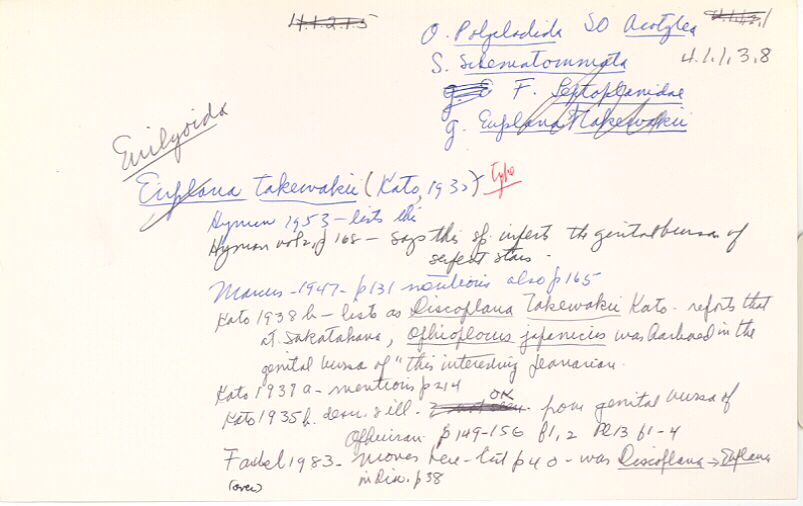 4.1.2.1.5
O. Polycladida SO Acotylea
S. Schematommata 4.1.1.3.8
F. Leptoplanidae
g. Euplana takewakii
Emilyoida
Euplana takewakii (Kato, 1935) type
Hyman 1953 – lists this
Hyman vol 2, p 168 – says this sp. infests the genital bursas of
serpent stars.
Marcus – 1947 – p131 mentions also p165
Kato 1938b – lists as Discoplana Takewakii Kato. reports that
at Sakatahana, Ophioplocus japonicus was harbored in the
genital bursa of "this interesting planarian.
Kato 1937a – mentions p214
Kato 1935b. descr. & ill. – OK from genital bursa of
Ophiuran p149-156 f1,2 Pl13 f1-4
Faubel 1983 – moves here – list p40 – was Discoplana → Euplana
(over) in Disc. p38